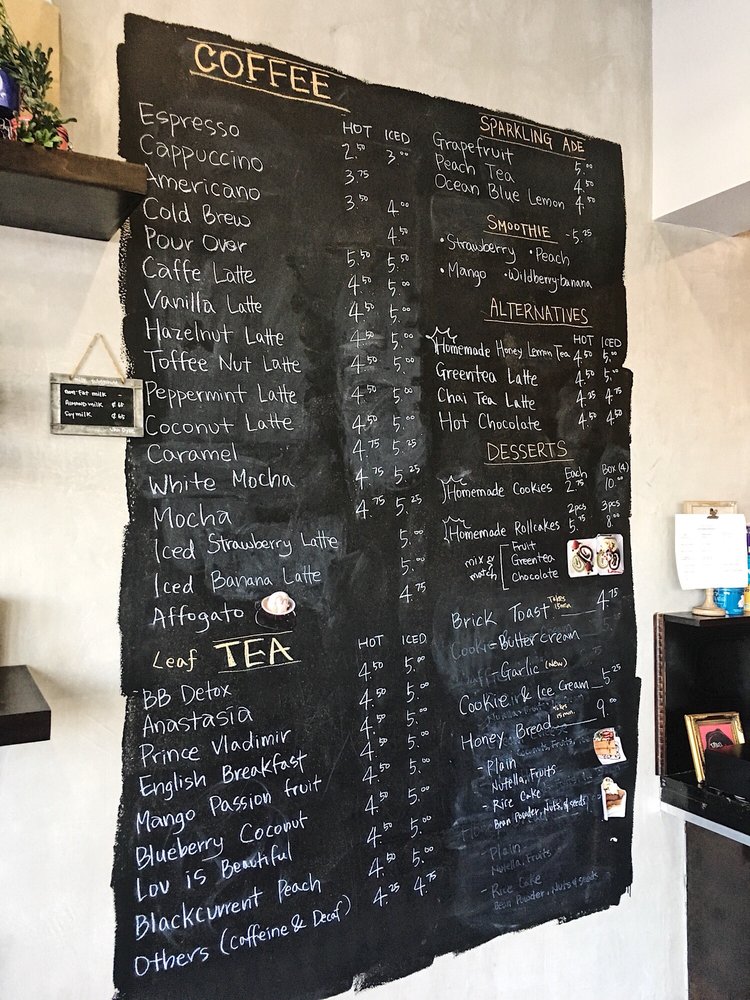 COFFEE
HOT ICED
Espresso 2.50 3.00
Cappuccino 3.75
Americano 3.50 4.00
Cold Brew 4.50
Pour Over 5.50 5.50
Caffe Latte 4.50 5.00
Vanilla Latte 4.50 5.00
Hazelnut Latte 4.50 5.00
Toffee Nut Latte 4.50 5.00
Peppermint Latte 4.50 5.00
Coconut Latte 4.50 5.00
Caramel 4.75 5.25
White Mocha 4.75 5.25
Mocha 4.75 5.25
Iced Strawberry Latte 5.00
Iced Banana Latte 5.00
Affogato 4.75
Leaf TEA
HOT ICED
BB Detox 4.50 5.00
Anastasia 4.50 5.00
Prince Vladimir 4.50 5.00
English Breakfast 4.50 5.00
Mango Passion fruit 4.50 5.00
Blueberry Coconut 4.50 5.00
Lov is Beautiful 4.50 5.00
Blackcurrent Peach 4.50 5.00
Others (Caffeine & Decaf) 4.25 4.75
SPARKLING ADE
Grapefruit 5.00
Peach Tea 4.50
Ocean Blue Lemon 4.50
SMOOTHIE - 5.25
• Strawberry • Peach
• Mango • Wildberry-banana
ALTERNATIVES
HOT ICED
Homemade Honey Lemon Tea 4.50 5.00
Greentea Latte 4.50 5.00
Chai Tea Latte 4.25 4.75
Hot Chocolate 4.50 4.50
DESSERTS
Each Box (4)
Homemade Cookies 2.75 10.00
2pcs 3pcs
Homemade Rollcakes 5.75 8.00
mix & match
Fruit
Greentea
Chocolate
Brick Toast Takes 15min 4.75
Cookie-Buttercream
Garlic (New)
Cookie & Ice Cream 5.25
Honey Bread takes 15min 9.00
- Plain
Nutella, Fruits
- Rice Cake
Bean Powder, Nuts, & seeds
- Plain
Nutella, Fruits
- Rice Cake
Bean Powder, Nuts & seeds
Non Fat milk -
Almond milk
Soy milk